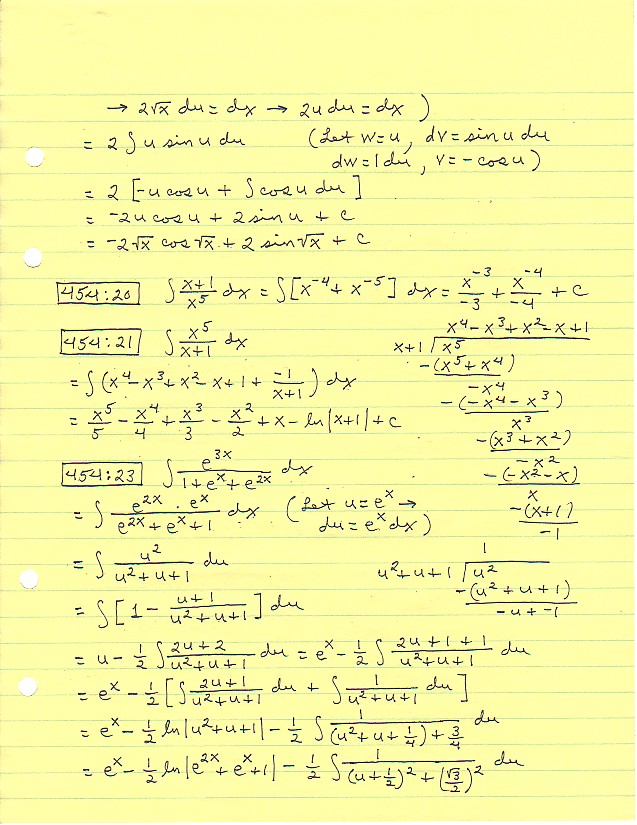 → 2√x du = dx → 2u du = dx )
= 2 ∫ u sin u du (Let w = u, dv = sin u du
dw = 1 du, v = -cos u)
= 2 [-u cos u + ∫ cos u du]
= -2u cos u + 2 sin u + c
= -2√x cos √x + 2 sin √x + c
454:20 ∫ (x+1)/x⁵ dx = ∫ [x⁻⁴ + x⁻⁵] dx = x⁻³/-3 + x⁻⁴/-4 + c
454:21 ∫ x⁵/(x+1) dx
x⁴ - x³ + x² - x + 1
x+1 | x⁵
-(x⁵ + x⁴)
-x⁴
-(-x⁴ - x³)
x³
-(x³ + x²)
-x²
-(-x² - x)
x
-(x+1)
-1
= ∫ (x⁴ - x³ + x² - x + 1 + -1/(x+1)) dx
= x⁵/5 - x⁴/4 + x³/3 - x²/2 + x - ln|x+1| + c
454:23 ∫ e³ˣ/(1 + eˣ + e²ˣ) dx
= ∫ (e²ˣ · eˣ)/(e²ˣ + eˣ + 1) dx (Let u = eˣ →
du = eˣ dx)
= ∫ u²/(u² + u + 1) du
1
u² + u + 1 | u²
-(u² + u + 1)
-u + -1
= ∫ [1 - (u+1)/(u² + u + 1)] du
= u - 1/2 ∫ (2u+2)/(u² + u + 1) du = eˣ - 1/2 ∫ (2u + 1 + 1)/(u² + u + 1) du
= eˣ - 1/2 [∫ (2u+1)/(u² + u + 1) du + ∫ 1/(u² + u + 1) du]
= eˣ - 1/2 ln|u² + u + 1| - 1/2 ∫ 1/((u² + u + 1/4) + 3/4) du
= eˣ - 1/2 ln|e²ˣ + eˣ + 1| - 1/2 ∫ 1/((u + 1/2)² + (√3/2)²) du